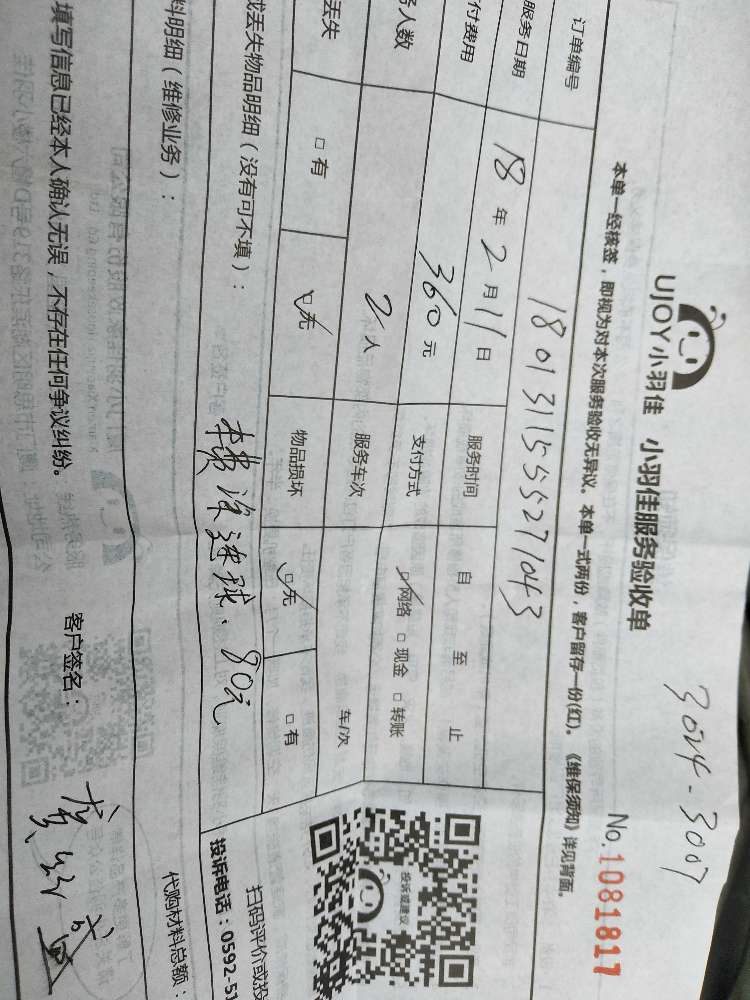 3024-3007
UJOY小羽佳 小羽佳服务验收单
No.1081817
本单一经核签，即视为对本次服务验收无异议。本单一式两份，客户留存一份(红)。《维保须知》详见背面。
订单编号 1801311555271043
服务日期 18年2月11日 服务时间 自 至 止
付费用 360元 支付方式 ☑网络 □现金 □转账
务人数 2人 服务车次 车/次
丢失 □有 ☑无 物品损坏 ☑无 □有
或丢失物品明细（没有可不填）：
80元
扫码评价或投
投诉电话：0592-51
投诉或建议
料明细（维修业务）：
代购材料总额：
填写信息已经本人确认无误，不存在任何争议纠纷。
客户签名：